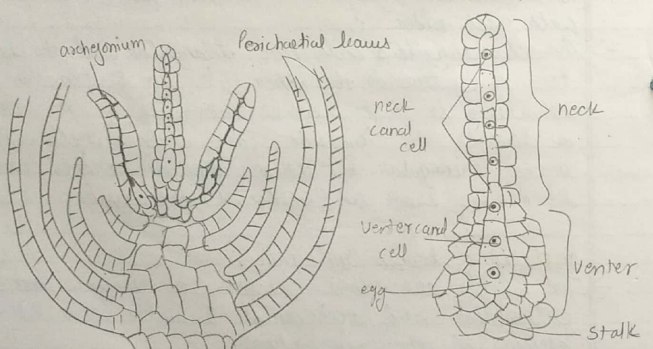 archegonium
Perichaetial leaves
neck
canal
cell
neck
Ventercanal
cell
egg
Venter
Stalk